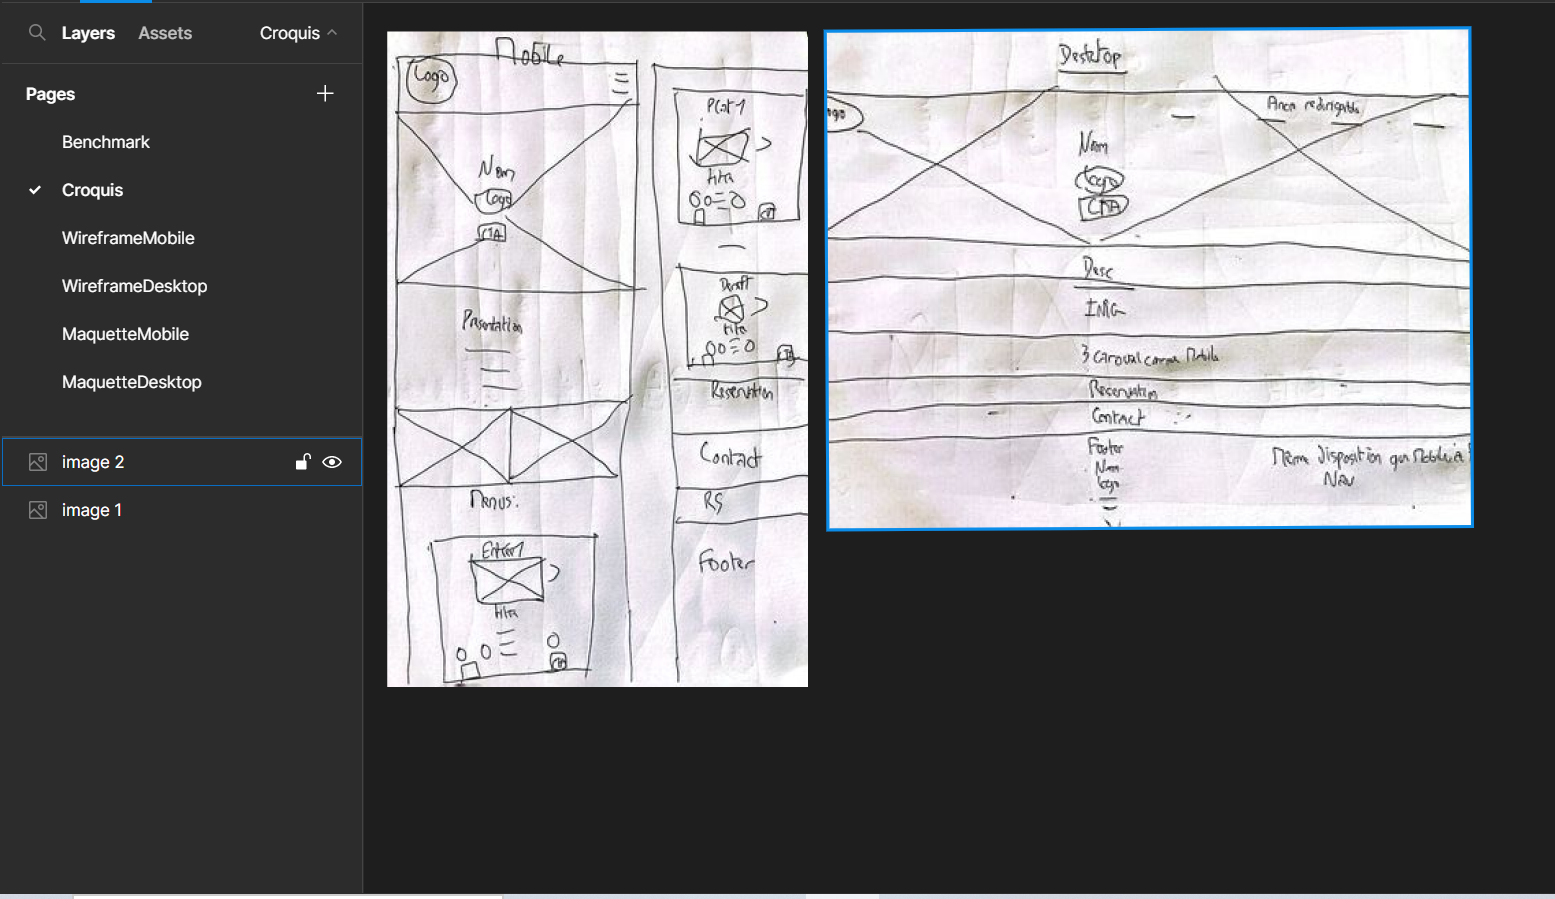 Layers Assets Croquis
Pages
Benchmark
Croquis
WireframeMobile
WireframeDesktop
MaquetteMobile
MaquetteDesktop
image 2
image 1
Mobile
Logo
Nom
Logo
CTA
Présentation
Menus:
Entrée 1
titre
Plat 1
titre
Dessert
titre
Reservation
Contact
RS
Footer
Desktop
Ancre redirigeable
Nom
Logo
CTA
Desc
IMG
3 caroussel comme Mobile
Reservation
Contact
Footer
Nom
logo
Même disposition que Mobile à
Nav